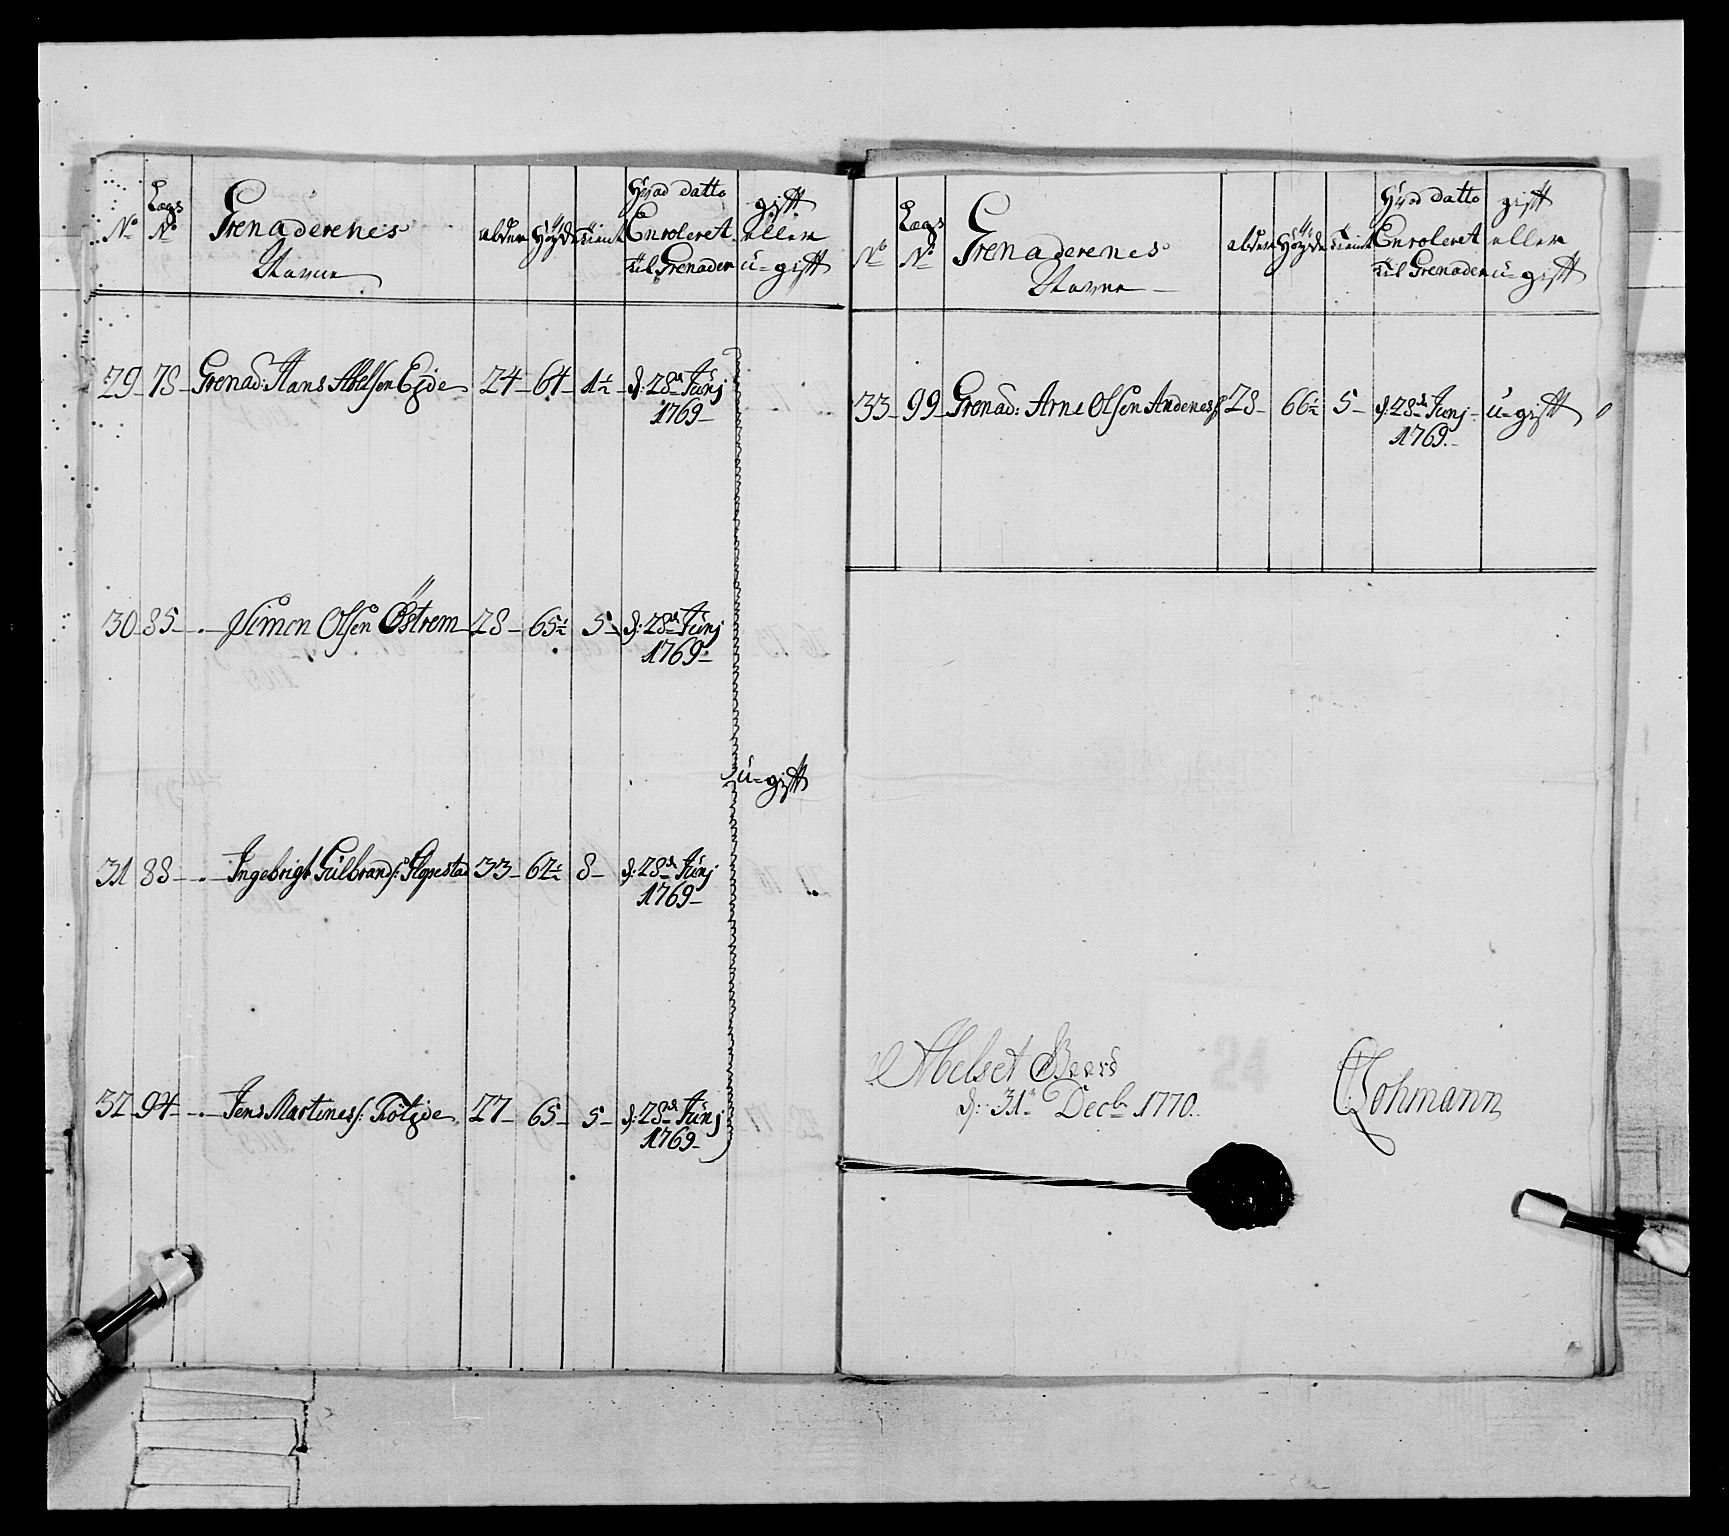 No
Lægs No
Grenaderenes Navne
alder
Höyde
Tient
Hvad datto Enroleret til Grenader
gift eller u-gift
29 - 78 - Grenad: Hans Abelsen Egde - 24 - 64 - 1½ - d: 28de Junj 1769 -
30 - 85 - . - Simon Olsen Östrem - 28 - 65½ - 5 - d: 28de Junj 1769 -
u-gift
31 - 88 - . - Ingebrigt Gulbrands: - 33 - 64½ - 8 - d: 28de Junj 1769 -
32 - 94 - . - Jens Martines: - 27 - 65 - 5 - d: 28de Junj 1769 -
No
Lægs No
Grenaderenes Navne
alder
Höyde
Tient
Hvad datto Enroleret til Grenader
gift eller u-gift
33 - 99 - Grenad: Arne Olsen Andenes - 28 - 66½ - 5 - d: 28de Junj - 1769. - u-gift
Abelset Gaard
d: 31te Decb. 1770.
Lohmann
24